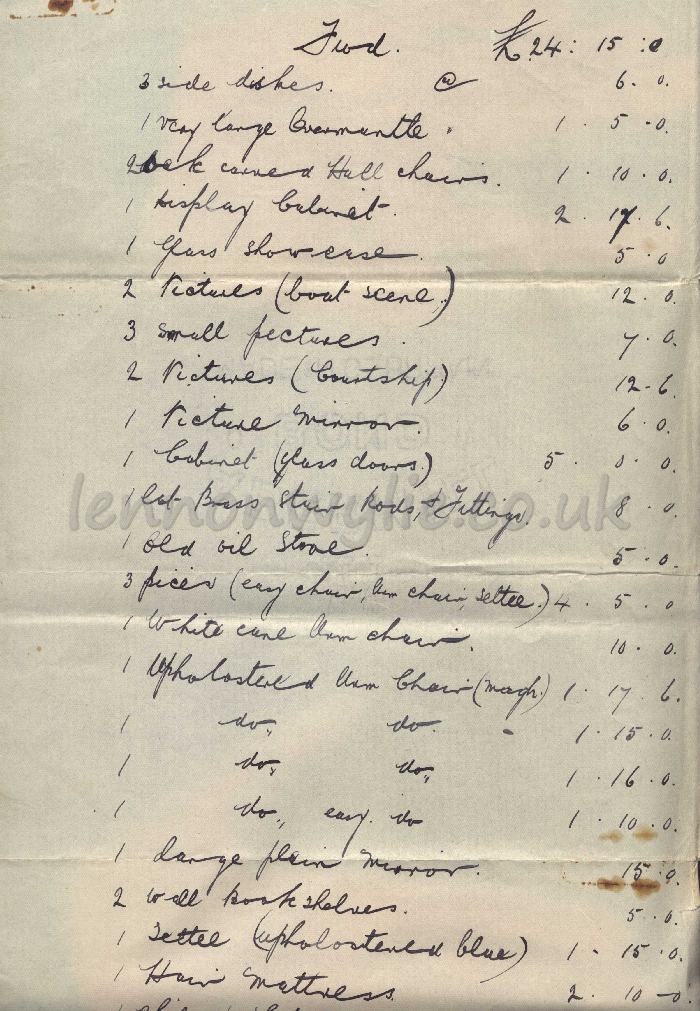 Fwd. £24 : 15 : 0
3 side dishes. @ 6. 0.
1 very large Overmantle. 1. 5 -0.
2 oak carved Hall chairs. 1. 10. 0.
1 Display Cabinet. 2. 17. 6.
1 Glass show case. 5. 0
2 Pictures (boat scene.) 12. 0.
3 small pictures. 7. 0.
2 Pictures (Courtship.) 12-6.
1 Picture Mirror. 6 0.
1 Cabinet (glass doors.) 5. 0. 0.
1 lot Brass Stair Rods, & Fittings. 8. 0.
lennonwylie.co.uk
1 old oil Stove. 5. 0.
3 pices (easy chair, Arm chair, settee.) 4. 5. 0
1 White cane Arm chair. 10. 0.
1 Upholostered Arm Chair (Mogh.) 1. 17. 6.
1 do,, do. 1. 15. 0.
1 do,, do,, 1. 16. 0.
1 do,, easy. do 1. 10. 0.
1 Large plain Mirror. 15. 0.
2 wall book shelves. 5. 0.
1 Settee (upholostered blue) 1 - 15. 0.
1 Hair Mattress 2. 10 -0.